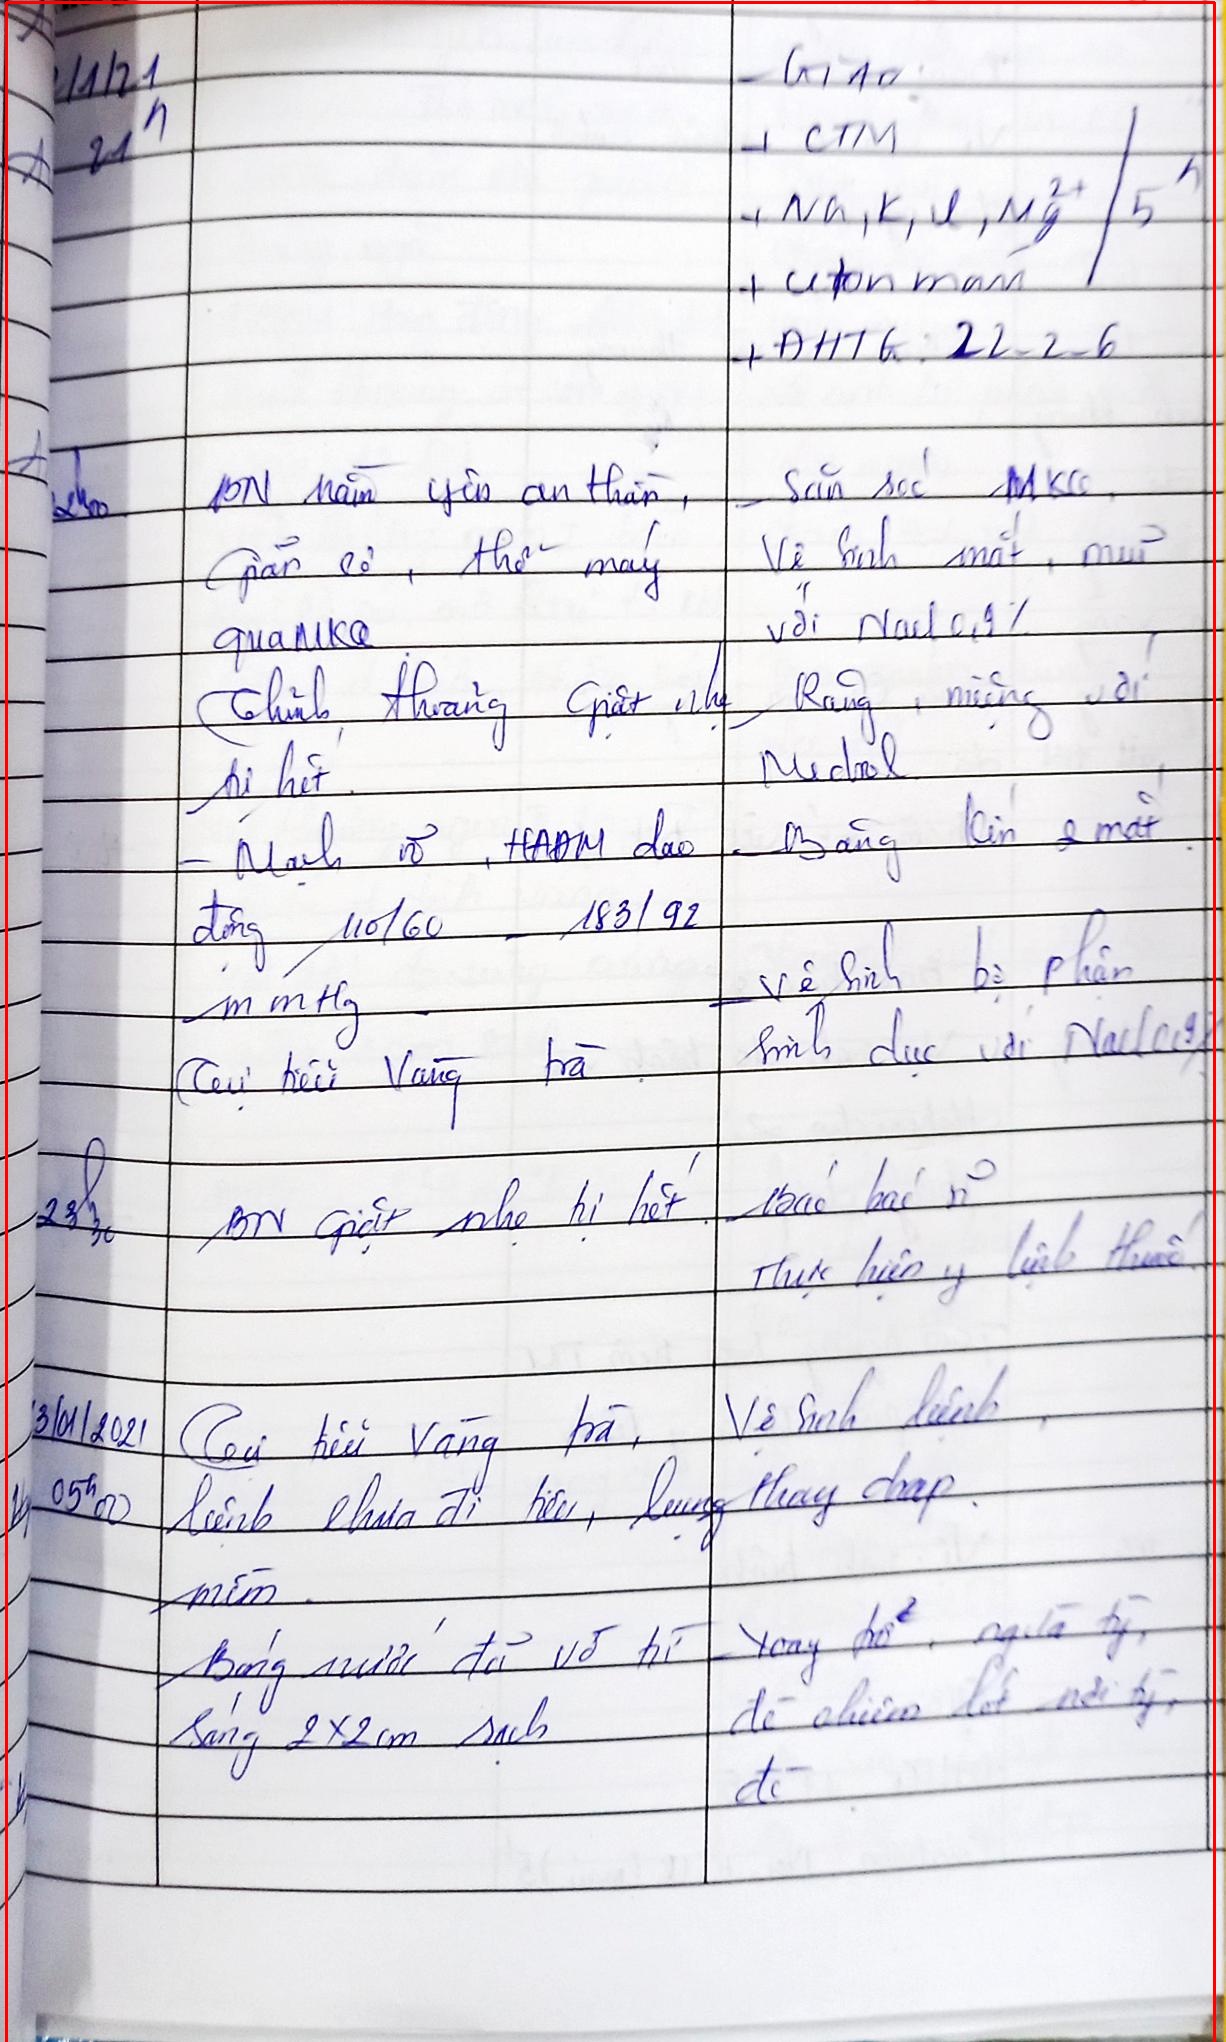 /1/21
21h
+ CTM
+ Na, K, Cl, Mg2+ / 5h
+ ĐHTG: 22-2-6
BN nằm yên an thần,
giãn cơ, thở máy
qua MKQ
Thỉnh thoảng giật nhẹ
chi hết.
- Mạch rõ, HAĐM dao
động 110/60 - 183/92
mmHg
Cụ tiểu vàng trà.
- Săn sóc MKQ.
Vệ sinh mắt, mũi
với NaCl 0,9%
- Răng, miệng với
Medrol
- Băng kín 2 mắt.
- Vệ sinh bộ phận
sinh dục với NaCl 0,9%
23h30
BN giật nhẹ
- Báo bác sĩ
Thực hiện y lệnh thuốc.
3/01/2021
05h00
Cụ tiểu vàng trà,
bệnh chưa đi tiêu, bụng
mềm.
Bóng nước đã vỡ
2x2cm sạch
Vệ sinh bệnh,
thay drap.
- Xoay trở, ngừa tỳ,
đè chêm lót nơi tỳ,
đè